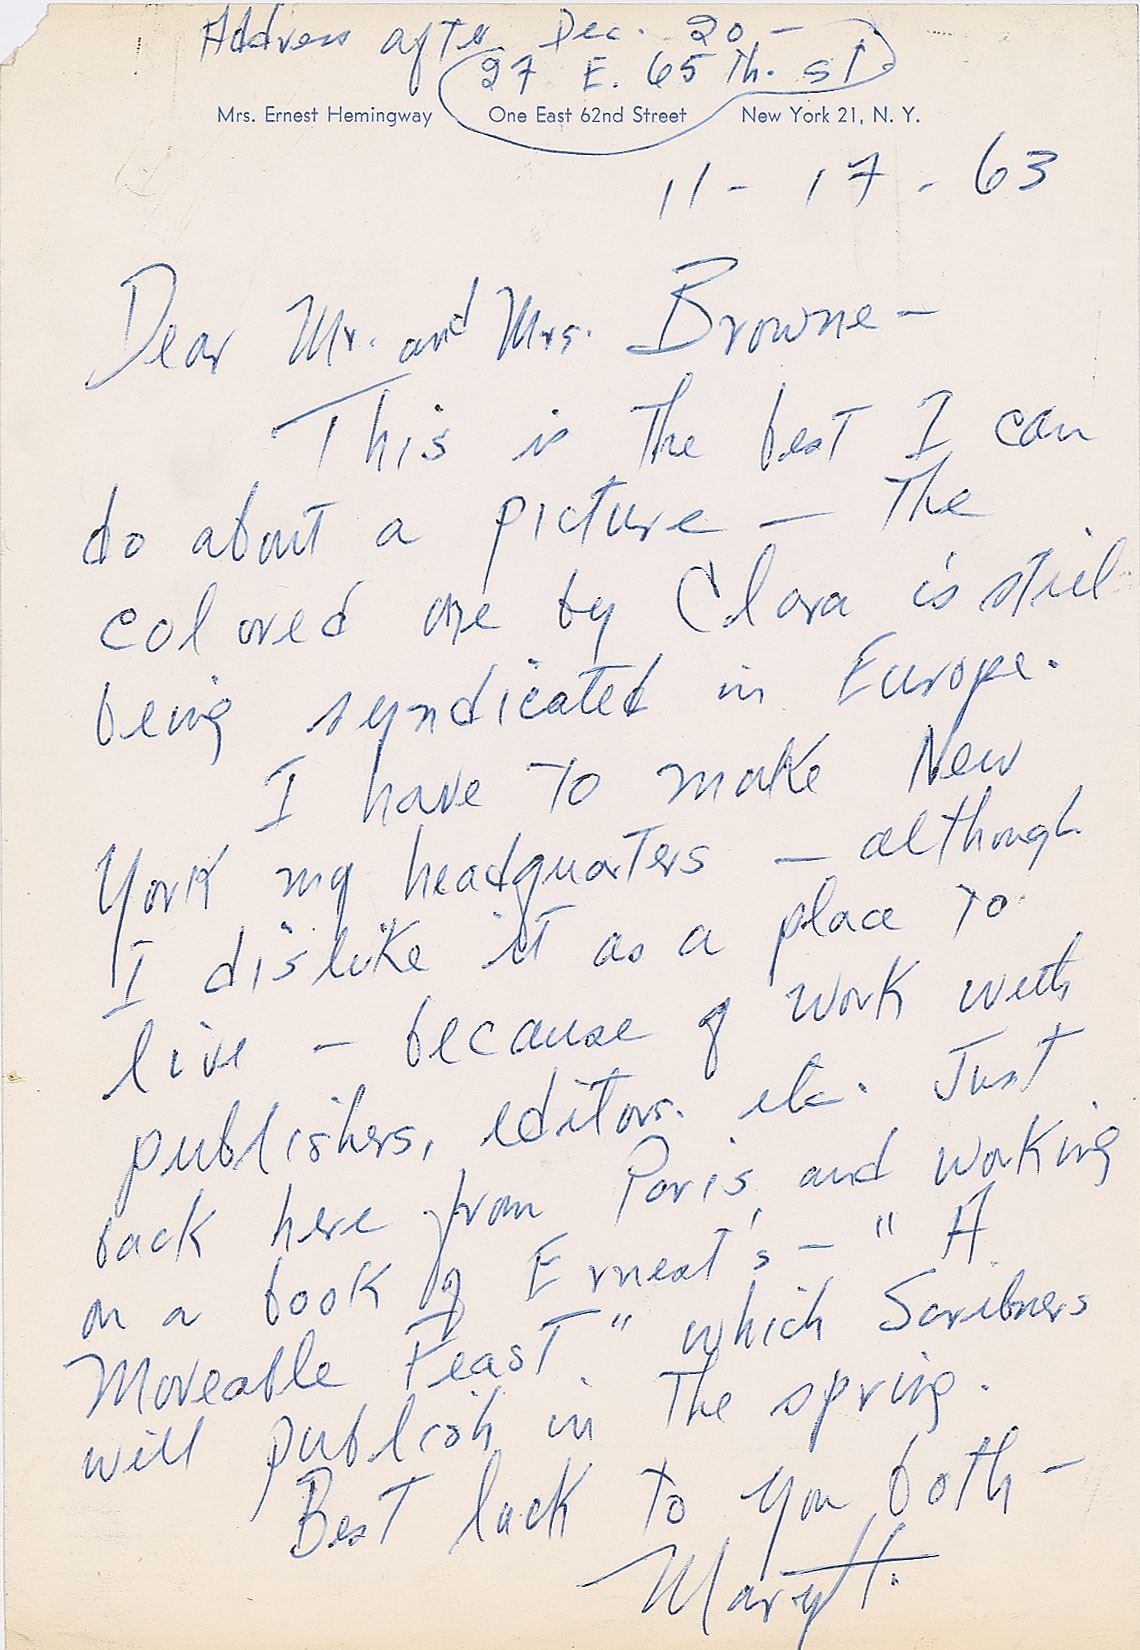 Address after Dec. 20 -
27 E. 65 Th. ST.
Mrs. Ernest Hemingway One East 62nd Street New York 21, N. Y.
11 - 17 - 63
Dear Mr. and Mrs. Browne -
This is the best I can
do about a picture - The
colored one by Clara is still
being syndicated in Europe.
I have to make New
York my headquarters - although
I dislike it as a place to
live - because of work with
publishers, editors. etc. Just
back here from Paris, and working
on a book of Ernest's - "A
Moveable Feast" which Scribners
will publish in the spring.
Best luck to you both -
Mary H.